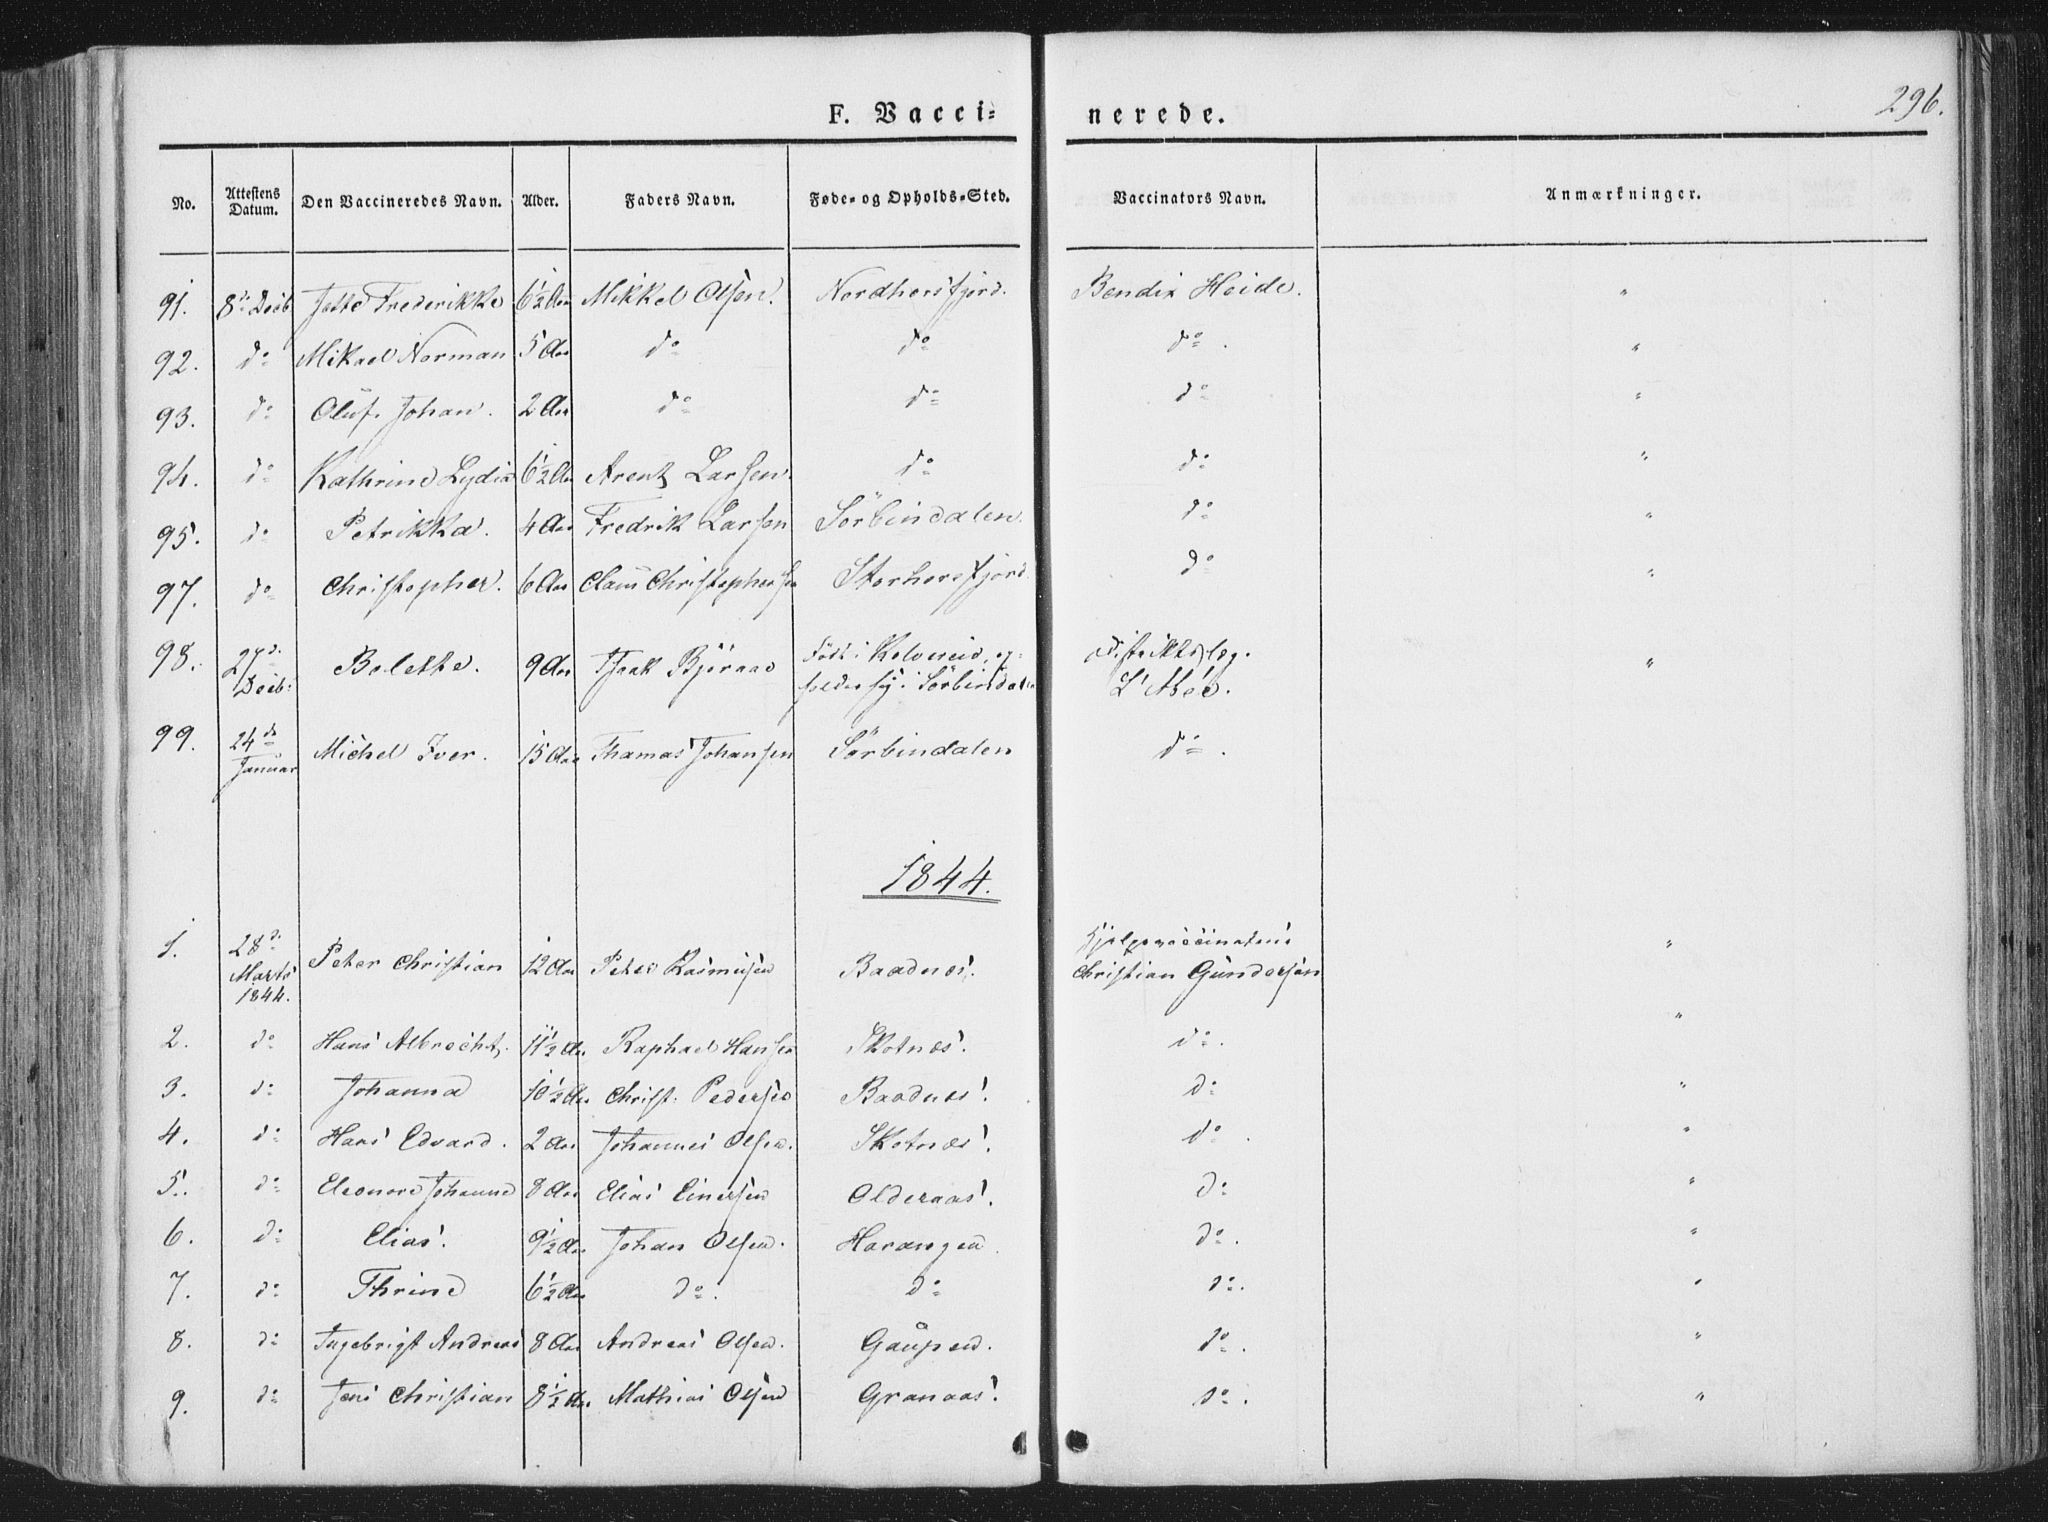 296.
F. Vacci= nerede.
No. Attestens Datum. Den Vaccineredes Navn. Alder. Faders Navn. Føde- og Opholds-Sted. Vaccinators Navn. Anmærkninger.
91. 8de Decb Jette Frederikke 6½ Aar Mikkel Olsen. Nordhorsfjord. Bendix Heide. "
92. do Mikael Norman 5 Aar do do do. "
93. do Oluf Johan. 2 Aar do do do "
94. do Kathrine Lydia 6½ Aar Arent Larsen. do do "
95. do Petrikka. 4 Aar Fredrik Larsen Sörbindalen. do "
97. do Christopher. 6 Aar Claus Christophersen Storhorsfjord. do "
98. 27de Decb: Bolette. 9 Aar Isaak Björaas Födt i Kolvereid, op= holder sig i Sörbindalen Distriktslæg. L'Abée. "
99. 24de Januar Michel Iver. 15 Aar Thomas Johansen Sörbindalen do.
1844.
1. 28de Marts 1844. Peter Christian 12 Aar Peter Rasmusen Baadnæs. Hjelpevaccinateur Christian Gundersen "
2. do Hans Albrecht. 11½ Aar Raphael Hansen Skotnæs. do. "
3. do Johanna 10½ Aar Christ: Pedersen Baadnæs. do "
4. do Hans Edvard. 2 Aar Johannes Olsen. Skotnæs. do. "
5. do Eleonore Johanne 8 Aar Elias Einersen Olderaas. do "
6. do Elias. 9½ Aar Johan Olsen. Horangen. do. "
7. do Thrine 6½ Aar do. do do. "
8. do Ingebrigt Andreas 8 Aar Andreas Olsen. Gaupen. do. "
9. do Jens Christian 8½ Aar Mathias Olsen Granaas. do. "